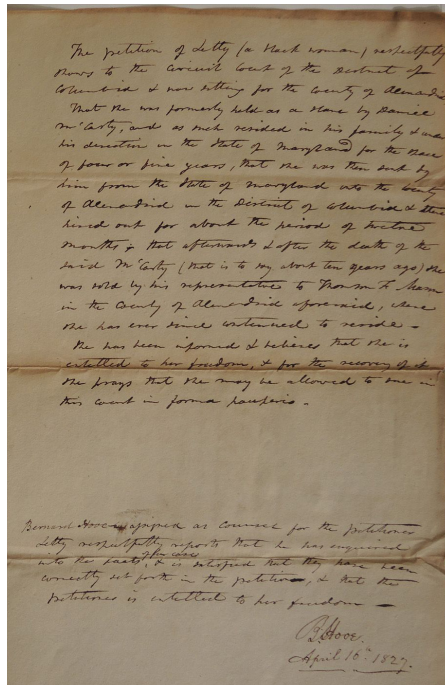 The petition of Letty (a black woman) respectfully
shows to the Circuit Court of the District of
Columbia & now sitting for the County of Alexandria
That she was formerly held as a slave by Daniel
McCarty, and as such resided in his family & under
his direction in the State of Maryland for the space
of four or five years, that she was then sent by
him from the State of Maryland into the County
of Alexandria in the District of Columbia & there
hired out for about the period of twelve
months & that afterwards & after the death of the
said McCarty (that is to say about ten years ago) she
was sold by his representative to Thomson F. Mason
in the County of Alexandria aforesaid, where
she has ever since continued to reside -
She has been informed & believes that she is
entitled to her freedom, & for the recovery of it
she prays that she may be allowed to sue in
this court in forma pauperis -
Bernard Hooe assigned as counsel for the petitioner
Letty respectfully reports that he has enquired
into the facts of her case, & is satisfied that they have been
correctly set forth in the petition, & that the
petitioner is entitled to her freedom -
B. Hooe.
April 16th 1827.